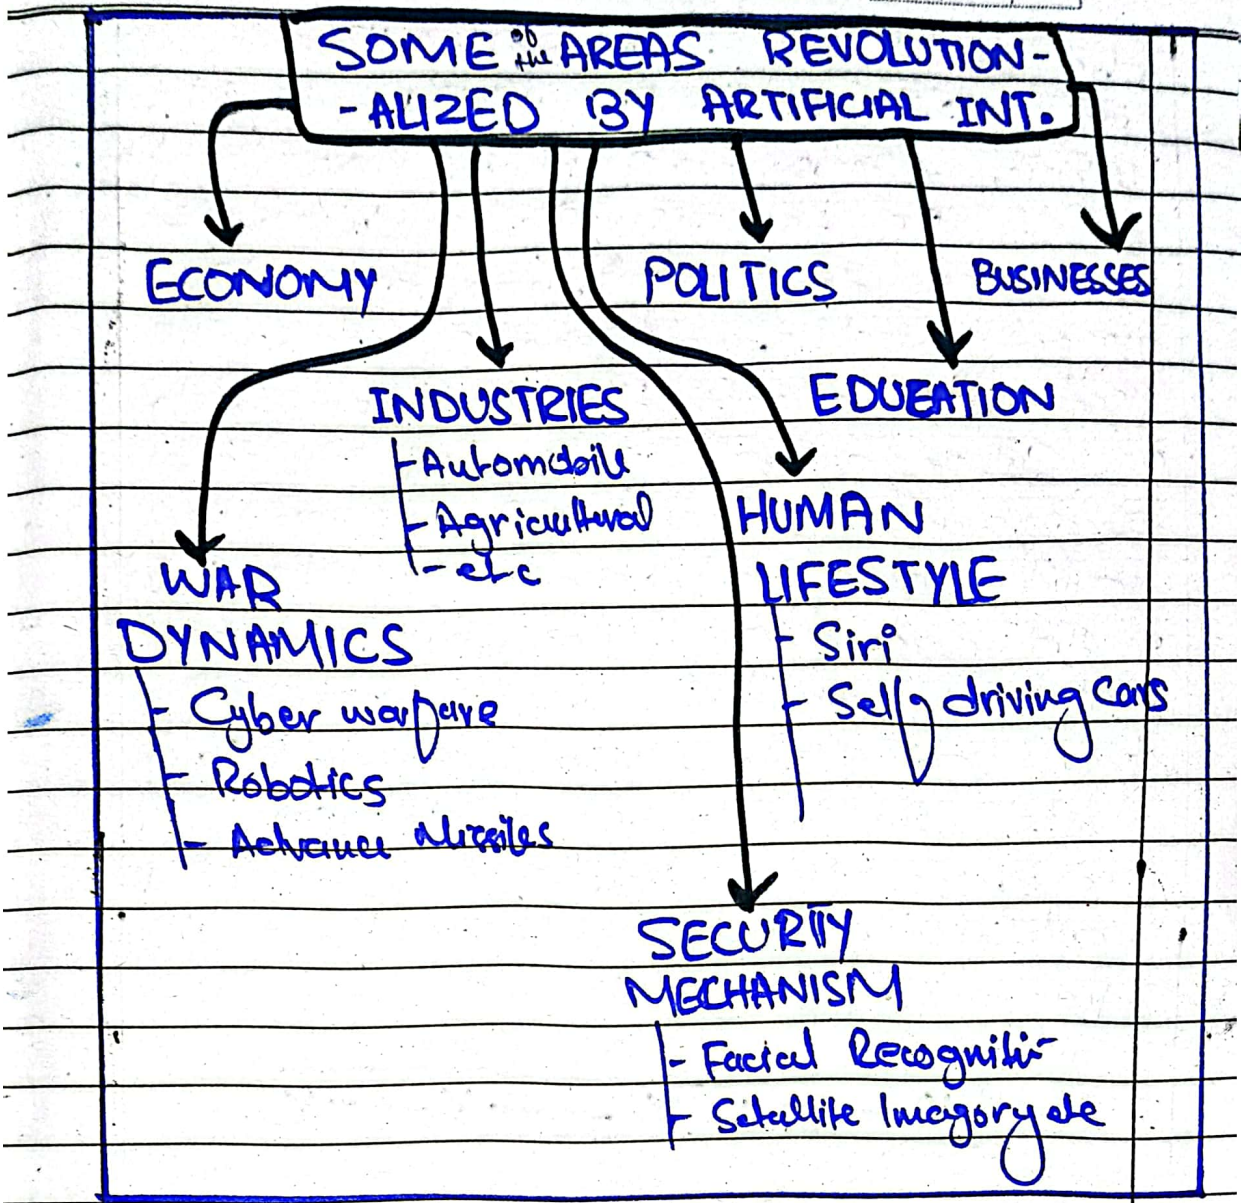 SOME of the AREAS REVOLUTION-
-ALIZED BY ARTIFICIAL INT.
ECONOMY
POLITICS
BUSINESSES
INDUSTRIES
- Automobile
- Agricultural
- etc
EDUCATION
HUMAN
LIFESTYLE
- Siri
- Self driving Cars
WAR
DYNAMICS
- Cyber warfare
- Robotics
- Advance Missiles
SECURITY
MECHANISM
- Facial Recognition
- Satellite Imagory etc